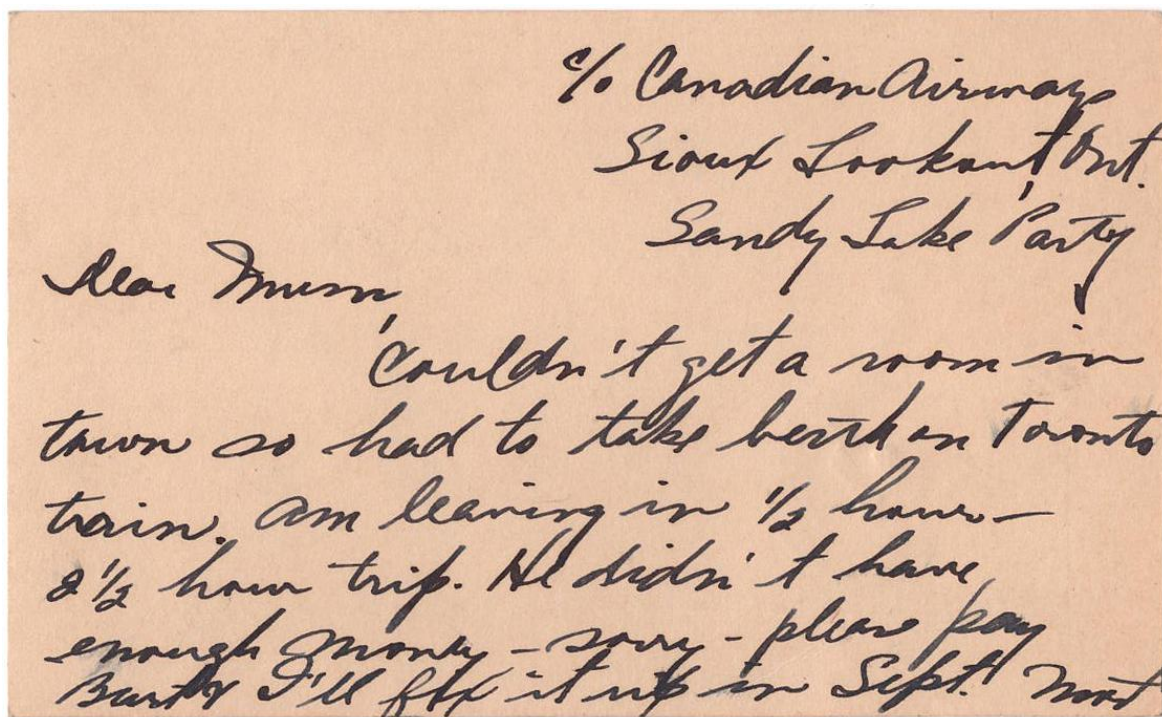 c/o Canadian Airways
Sioux Lookout, Ont.
Sandy Lake Party
Dear Mum,
Couldn't get a room in
town so had to take berth on Toronto
train. Am leaving in 1/2 hour –
2 1/2 hour trip. He didn't have
enough money – sorry – please pay
Bart & I'll fix it up in Sept.